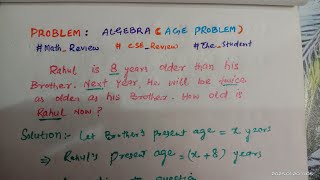 PROBLEM: ALGEBRA (AGE PROBLEM)
#Math_Review # CSE_Review #The_Student
Rahul is 8 years older than his
Brother. Next year, He will be twice
as older as his Brother. How old is
Rahul Now?
Solution:- Let Brother's present age = x years
⇒ Rahul's present age = (x + 8) years